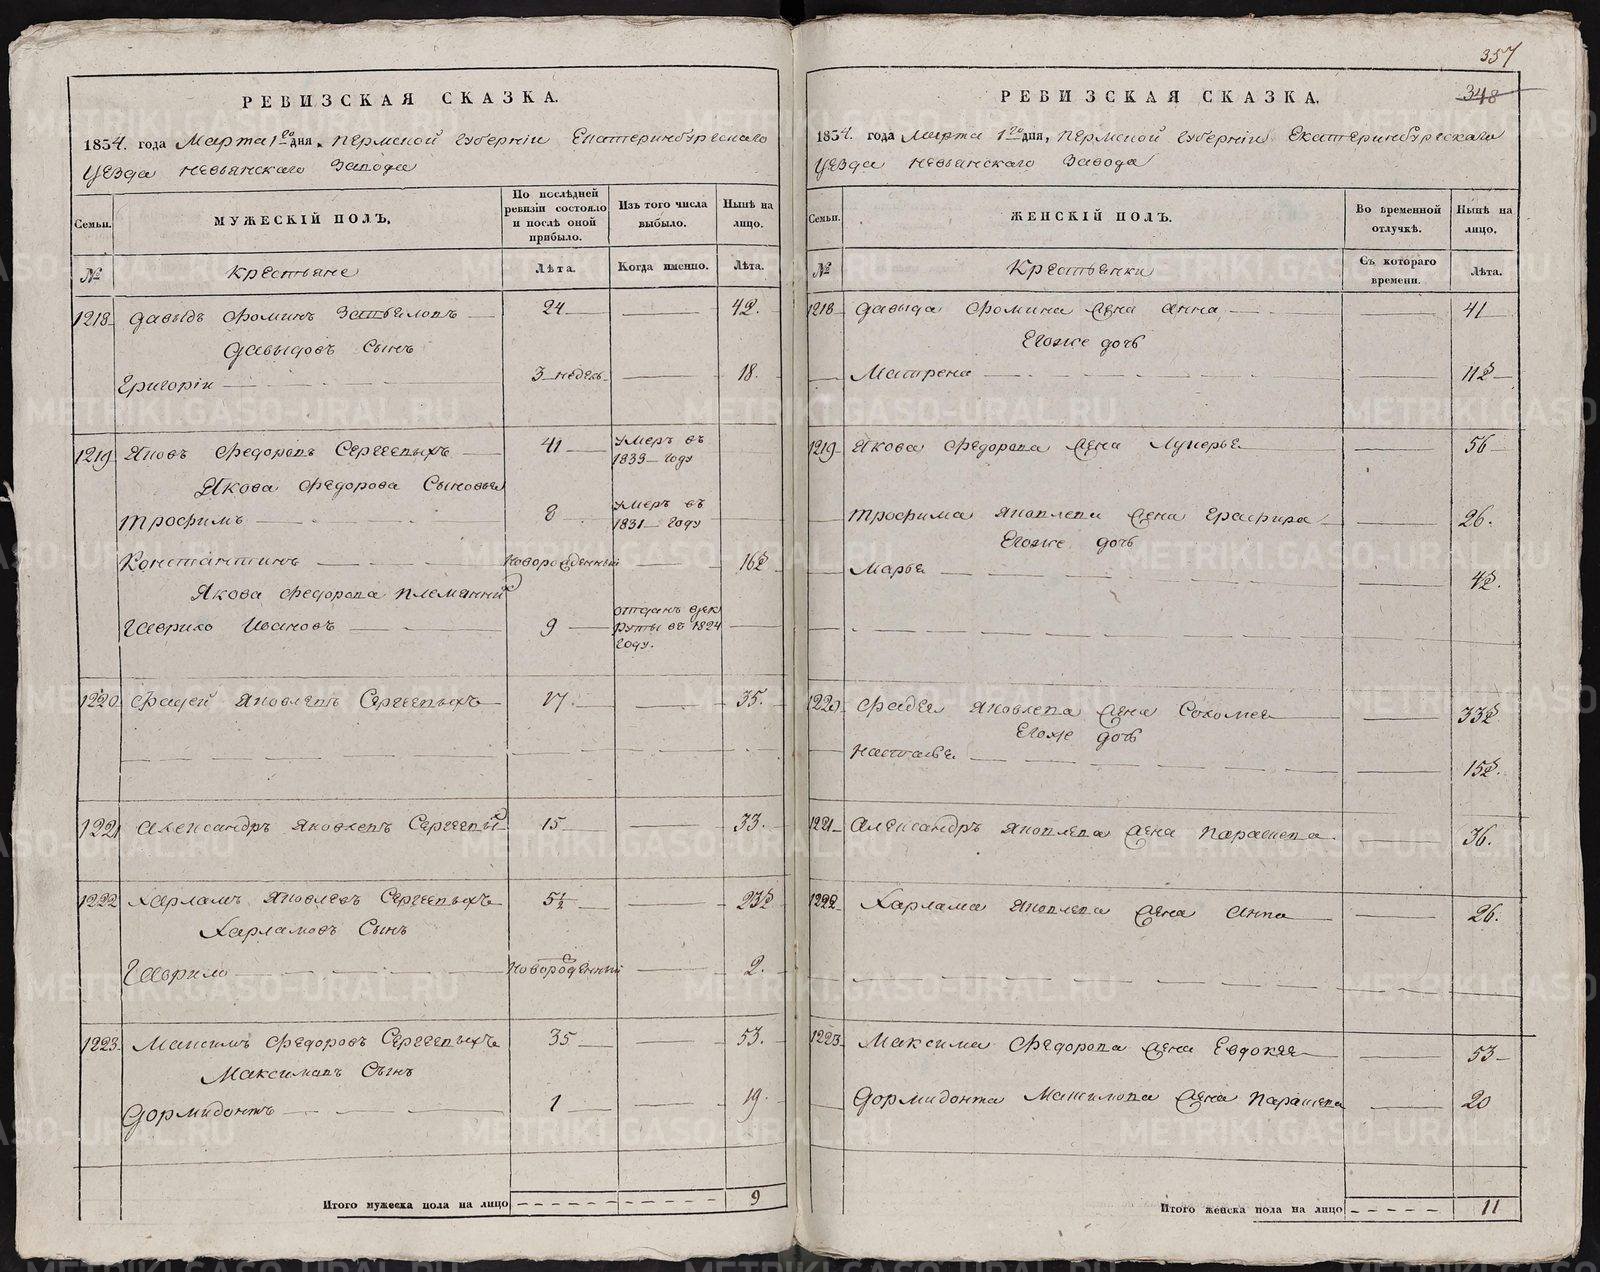 РЕВИЗСКАЯ СКАЗКА.
1834. года Марта 1го дня, Пермской губерніи Екатеринбургскаго
Уезда Невьянскаго Завода
Семьи. МУЖЕСКІЙ ПОЛЪ, По послѣдней ревизіи состояло и послѣ оной прибыло. Изъ того числа выбыло. Нынѣ на лицо.
№ Крестьяне Лѣта. Когда именно. Лѣта.
1218 Давыдъ Фоминъ 24 42.
Давыдовъ Сынъ
Григорій 3 недель 18.
1219 Яковъ Федоровъ Сергеевыхъ 41 умеръ въ 1833 году
Якова Федорова Сыновья
Трофимъ 8 умеръ въ 1831 году
Константинъ Новорожденный 16½
Якова Федорова племянник
Гаврило Ивановъ 9 отданъ в рекруты въ 1824 году.
1220 Фадей Яковлевъ Сергеевыхъ 17. 35.
1221 Александръ Яковлевъ Сергеевы 15 33.
1222 Харламъ Яковлевъ Сергеевыхъ 5½ 23½
Харламовъ Сынъ
Гаврило Новорожденный 2.
1223. Максимъ Федоровъ Сергеевыхъ 35 53.
Максимовъ Сынъ
Дормидонтъ 1 19.
Итого мужеска пола на лицо 9
357
348
РЕВИЗСКАЯ СКАЗКА,
1834. года Марта 1го дня, Пермской губерніи Екатеринбургскаго
Уезда Невьянскаго Завода
Семьи. ЖЕНСКІЙ ПОЛЪ. Во временной отлучкѣ. Нынѣ на лицо.
№ Крестьянки Съ котораго времени. Лѣта.
1218 Давыда Фомина жена Анна 41
Егоже дочь
Матрена 11½
1219 Якова Федорова жена Лукерья 56
Трофима Яковлева жена Графира 26.
Егоже дочь
Марья 4½.
1220 Фадея Яковлева жена Соломея 33½
Егоже дочь
Настасья 15½.
1221 Александръ Яковлева жена Парасковья 36.
1222 Харлама Яковлева жена Анна 26.
1223 Максима Федорова жена Евдокея 53
Дормидонта Максимова жена 20
Итого женска пола на лицо 11
METRIKI.GASO-URAL.RU